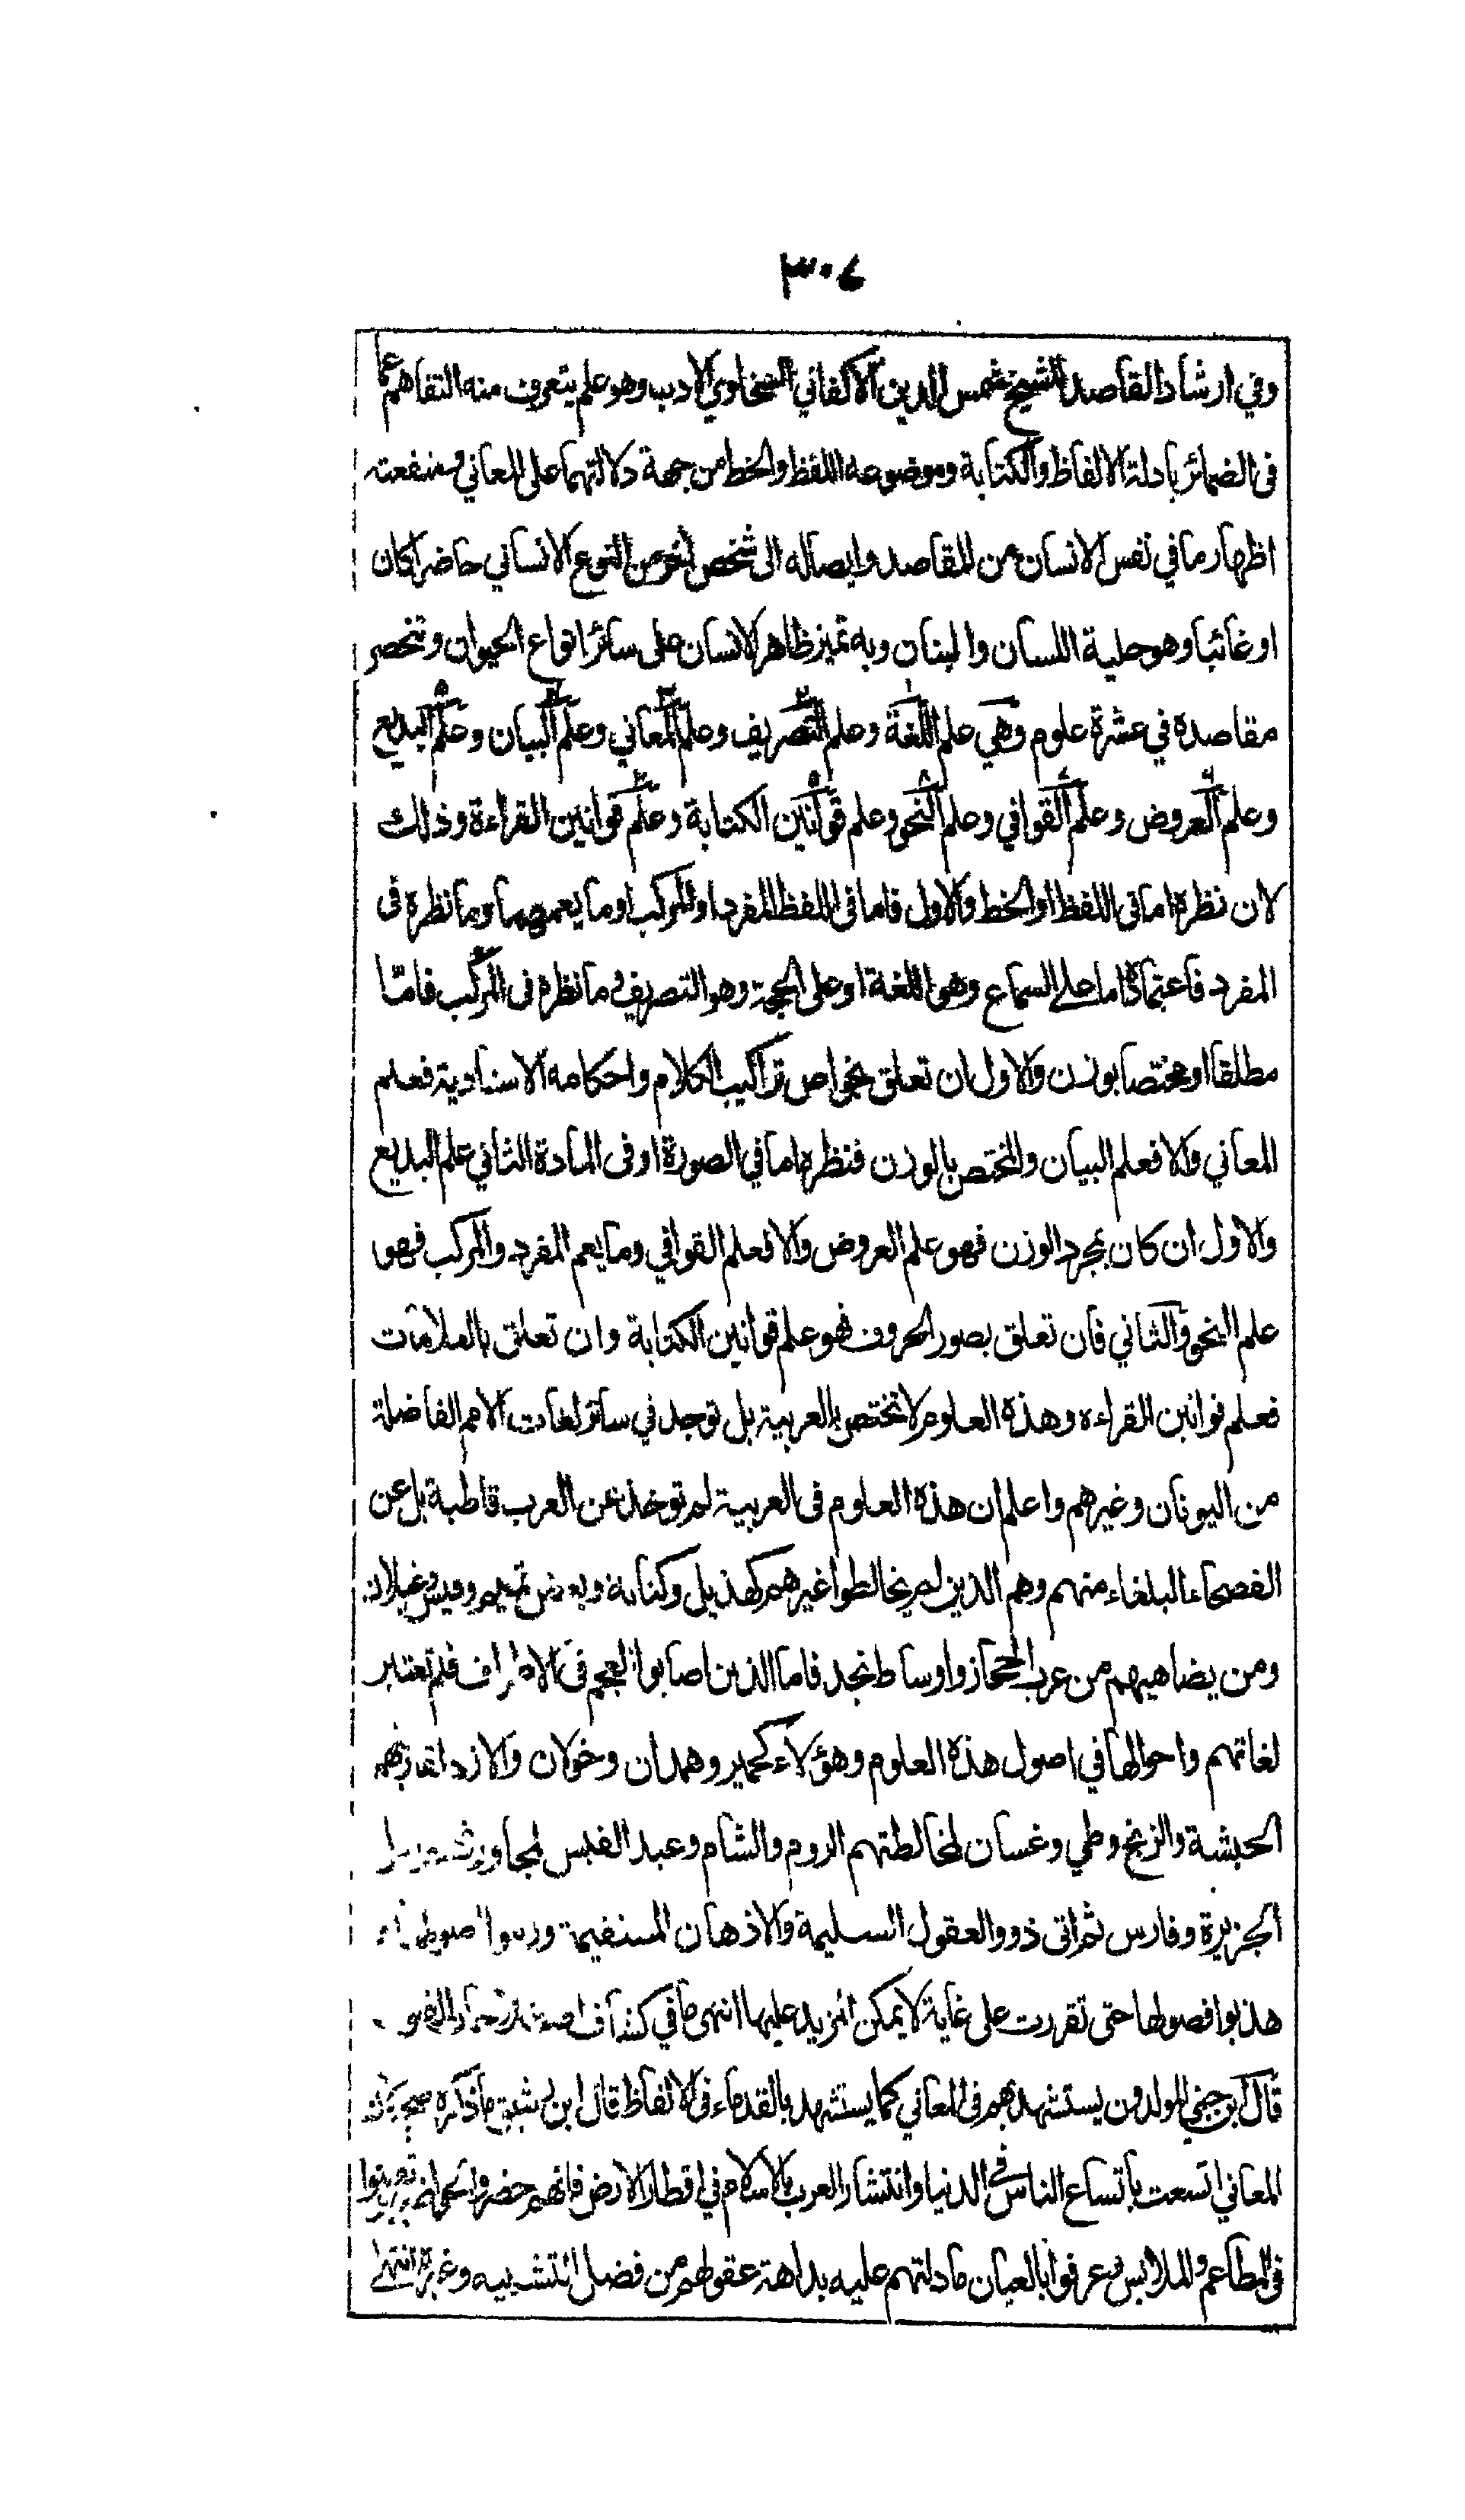 ٣٠٤
وفي ارشاد القاصد للشيخ شمس الدين الاكفاني السخاوي الادب وهو علم يتعرف منه التفاهم عما
في الضمائر بادلة الالفاظ والكتابة وموضوعه اللفظ والخط من جهة دلالتهما على المعاني ومنفعته
اظهار ما في نفس الانسان من المقاصد وايصاله الى شخص اخر من النوع الانساني حاضرا كان
او غائبا وهو حلية اللسان والبنان وبه تميز ظاهر الانسان على سائر انواع الحيوان وتنحصر
مقاصده في عشرة علوم وهي علم اللغة وعلم التصريف وعلم المعاني وعلم البيان وعلم البديع
وعلم العروض وعلم القوافي وعلم النحو وعلم قوانين الكتابة وعلم قوانين القراءة وذلك
لان نظره اما في اللفظ او الخط والاول فاما في اللفظ المفرد او المركب او ما يعمهما وما نظره في
المفرد فاعتماده اما على السماع وهو اللغة او على الحجة وهو التصريف وما نظره في المركب فامّا
مطلقا او مختصا بوزن والاول ان تعلق بخواص تراكيب الكلام واحكامه الاسنادية فعلم
المعاني والا فعلم البيان والمختص بالوزن فنظره اما في الصورة او في المادة الثاني علم البديع
والاول ان كان بمجرد الوزن فهو علم العروض والا فعلم القوافي وما يعم المفرد والمركب فهو
علم النحو والثاني فان تعلق بصور الحروف فهو علم قوانين الكتابة وان تعلق بالعلامات
فعلم قوانين القراءه وهذه العلوم لا تختص بالعربية بل توجد في سائر لغات الامم الفاضلة
من اليونان وغيرهم واعلم ان هذه العلوم في العربية لم توخذ عن العرب قاطبة بل عن
الفصحاء البلغاء منهم وهم الذين لم يخالطوا غيرهم كهذيل وكنانة وبعض تميم وقيس وغيلان
ومن يضاهيهم من عرب الحجاز واوساط نجد فاما الذين اصابوا العجم في الاطراف فلم تعتبر
لغاتهم واحوالها في اصول هذه العلوم وهؤلاء كحمير وهمدان وخولان والازد لمقاربتهم
الحبشة والزنج وطي وغسان لمخالطتهم الروم والشام وعبد القيس لمجاورتهم
الجزيرة وفارس ثم اتى ذوو العقول السليمة والاذهان المستقيمة ورتبوا اصولها
هذبوا فصولها حتى تقررت على غاية لا يمكن المزيد عليها انتهى ما في كشاف
قال ابن جني المولدون يستشهد بهم في المعاني كما يستشهد بالقدماء في الالفاظ قال ابن رشيق ما ذكره صحيح
المعاني اتسعت باتساع الناس في الدنيا وانتشار العرب بالاسلام في اقطار الارض فانهم حضروا
في المطاعم والملابس وعرفوا بالعيان ما دلتهم عليه بداهة عقولهم من فضل التشبيه وغيره انتهى